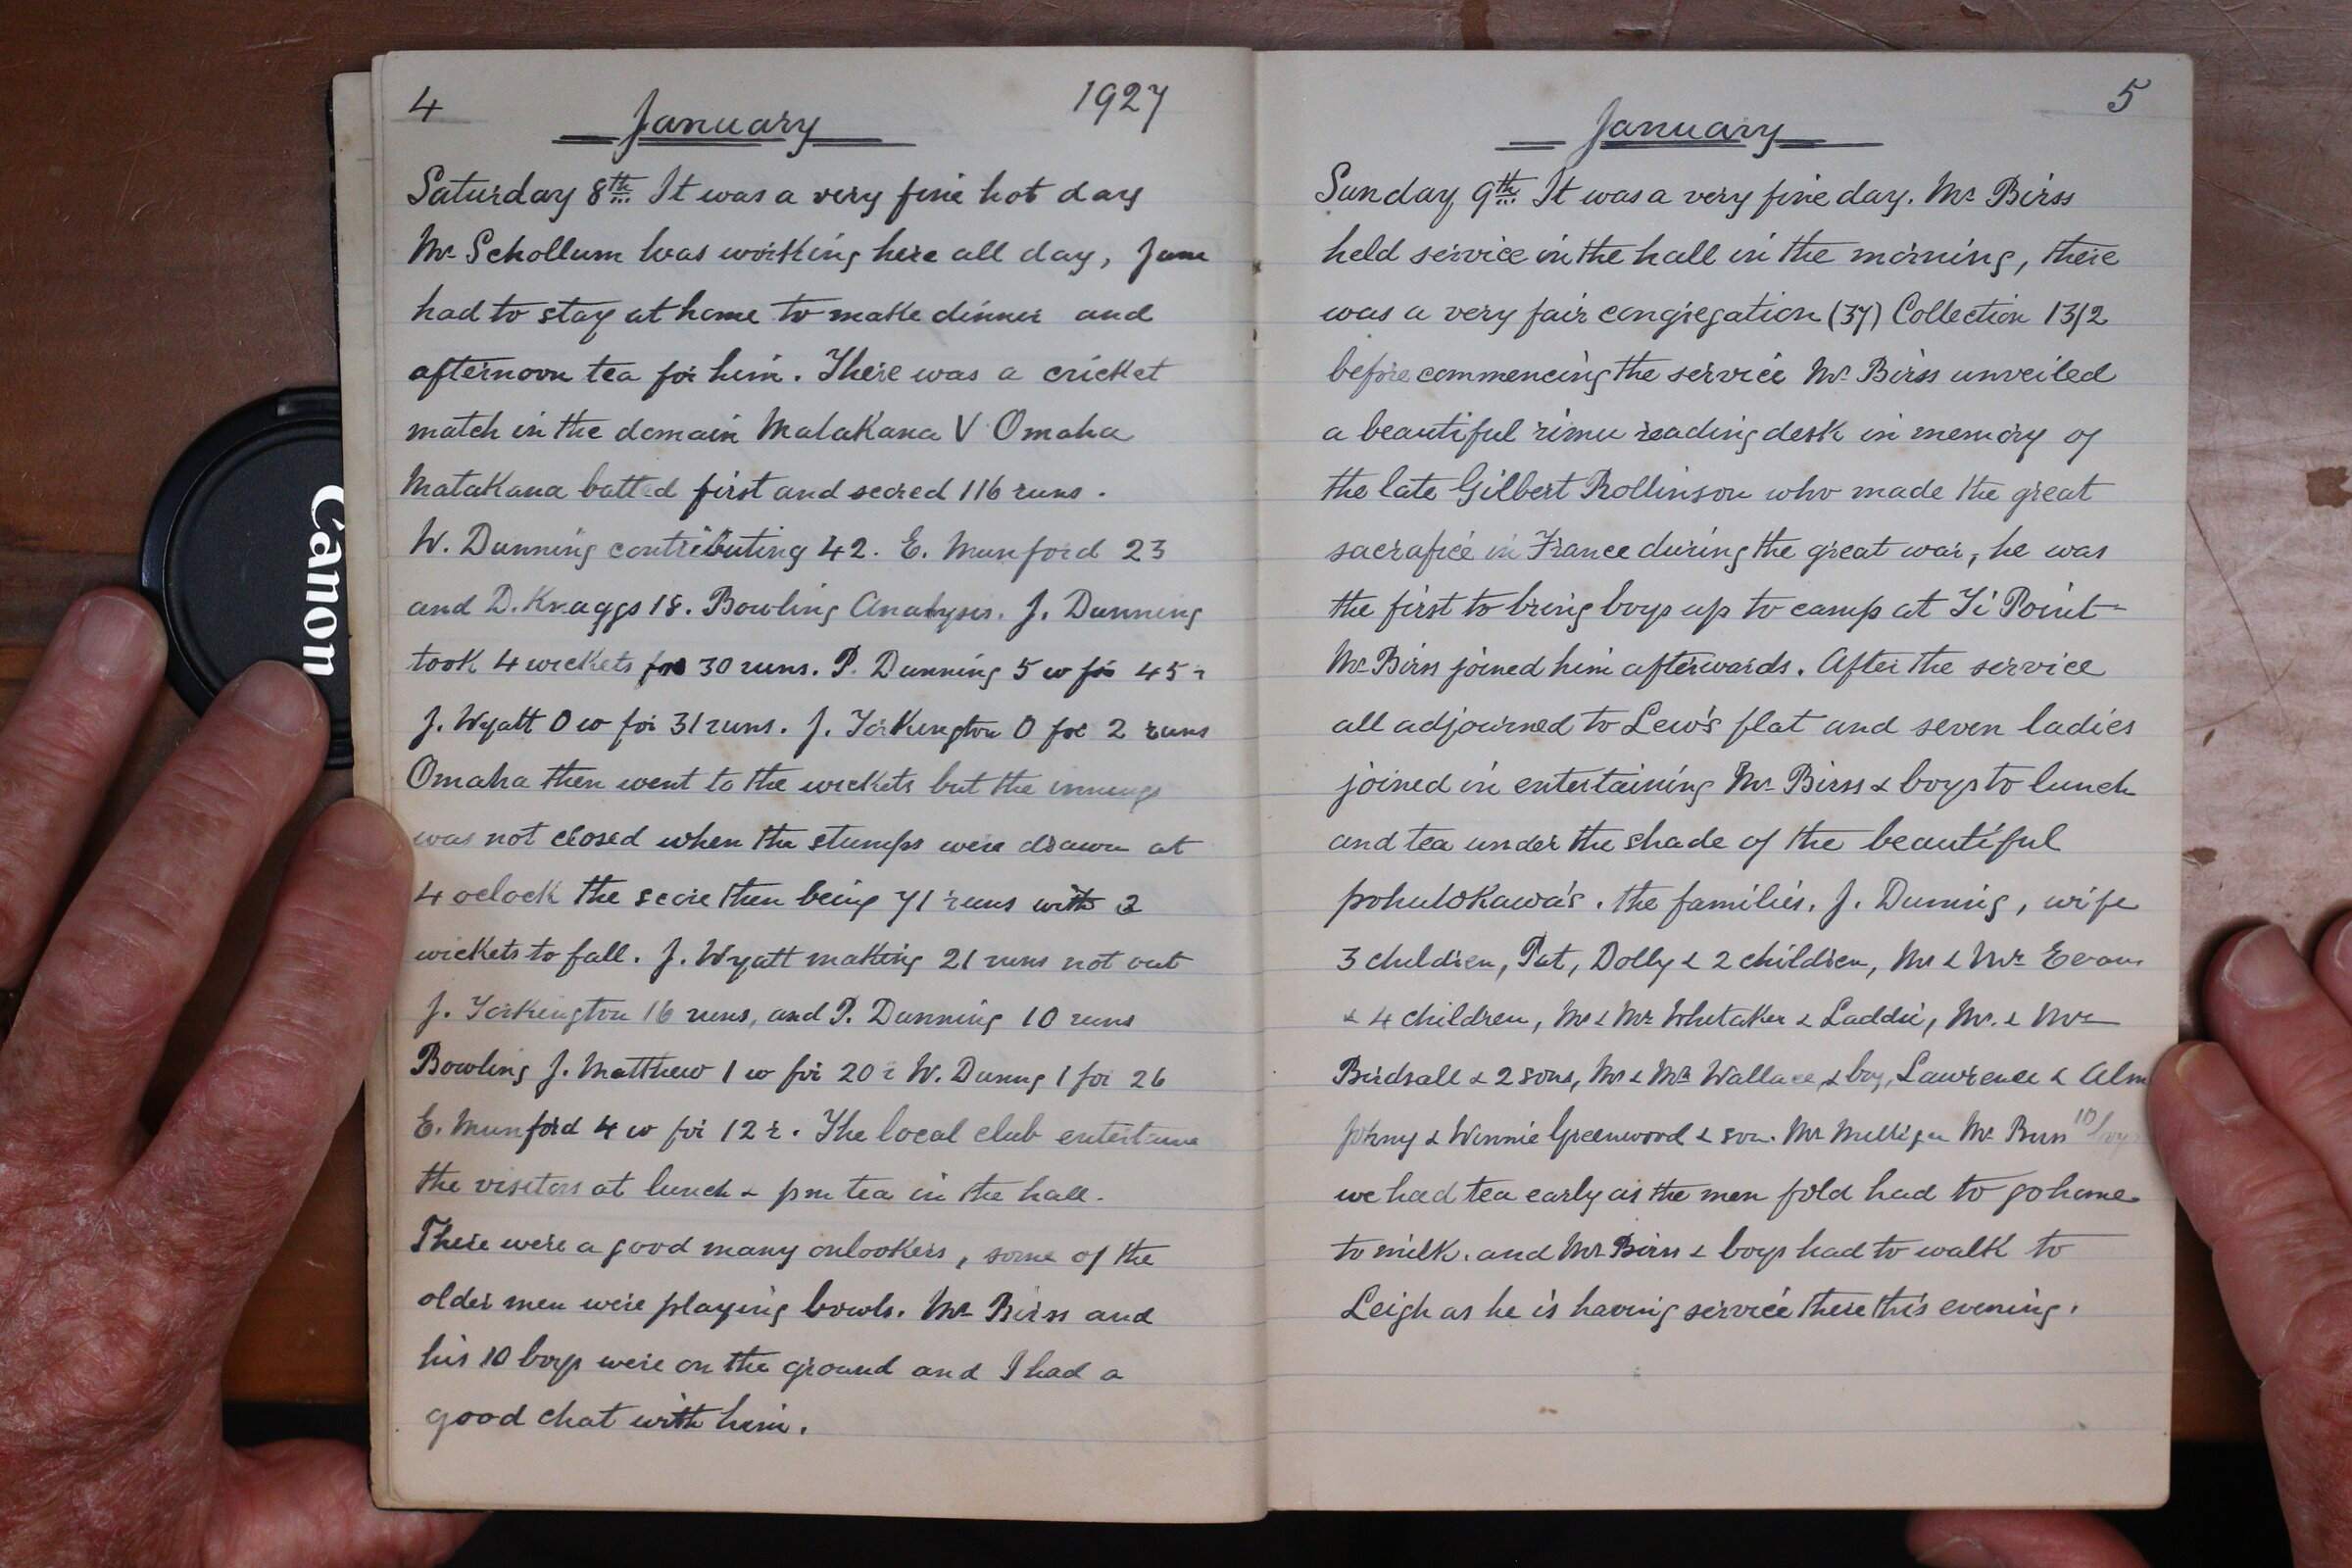 4 January 1927
Saturday 8th It was a very fine hot day
Mr Schollum was working here all day, Jane
had to stay at home to make dinner and
afternoon tea for him. There was a cricket
match in the domain Matakana V Omaha
Matakana batted first and scored 116 runs.
W. Dunning contributing 42. E. Munford 23
and D. Knaggs 18. Bowling Analysis. J. Dunning
took 4 wickets for 30 runs. P. Dunning 5 w for 45 r
J. Wyatt 0 w for 31 runs. J. Torkington 0 for 2 runs
Omaha then went to the wickets but the innings
was not closed when the stumps were drawn at
4 oclock the score then being 71 runs with
wickets to fall. J. Wyatt making 21 runs not out
J. Torkington 16 runs, and P. Dunning 10 runs
Bowling J. Matthew 1 w for 20 r W. Dunng 1 for 26
E. Munford 4 w for 12 r. The local club
the visitors at lunch & pm tea in the hall.
There were a good many onlookers, some of the
older men were playing bowls. Mr Birss and
his 10 boys were on the ground and I had a
good chat with him.
5
January
Sunday 9th It was a very fine day. Mr Birss
held service in the hall in the morning, there
was a very fair congregation (37) Collection 13/2
before commencing the service Mr Birss unveiled
a beautiful rimu reading desk in memory of
the late Gilbert Rollinson who made the great
sacrafice in France during the great war, he was
the first to bring boys up to camp at Ti Point
Mr Birss joined him afterwards. After the service
all adjourned to Lew's flat and seven ladies
joined in entertaining Mr Birss & boys to lunch
and tea under the shade of the beautiful
pohutokawa's. the families. J. Dunning, wife
3 children, Pat, Dolly & 2 children, Mr & Mrs Evans
& 4 children, Mr & Mrs Whitaker & Laddie, Mr. & Mrs
Birdsall & 2 sons, Mr & Mrs Wallace, & boy, Lawrence &
Johny & Winnie Greenwood & son. Mr Milligan Mr Birss 10 boys
we had tea early as the men fold had to go home
to milk. and Mr Birss & boys had to walk to
Leigh as he is having service there this evening.
Canon